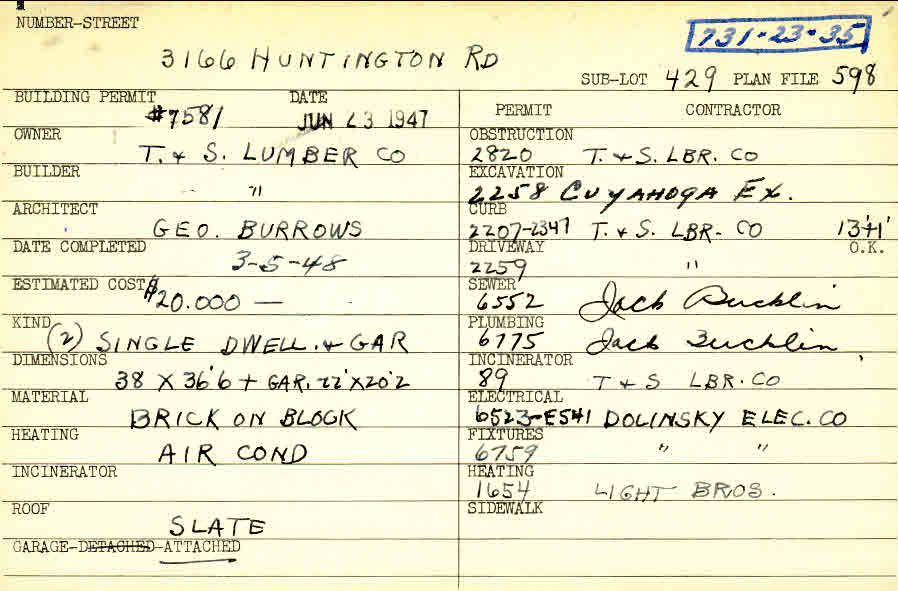 NUMBER-STREET
731-23-35
3166 HUNTINGTON RD
SUB-LOT 429 PLAN FILE 598
BUILDING PERMIT DATE
#7581 JUN 23 1947
OWNER
T. & S. LUMBER CO
BUILDER
"
ARCHITECT
GEO. BURROWS
DATE COMPLETED
3-5-48
ESTIMATED COST
$20.000 —
KIND
(2) SINGLE DWELL. & GAR
DIMENSIONS
38 X 36'6 + GAR. 22' X 20'2
MATERIAL
BRICK ON BLOCK
HEATING
AIR COND
INCINERATOR
ROOF
SLATE
GARAGE-DETACHED-ATTACHED
PERMIT CONTRACTOR
OBSTRUCTION
2820 T. & S. LBR. CO
EXCAVATION
2258 CUYAHOGA EX.
CURB
2207-2347 T. & S. LBR. CO 13'4 1'
DRIVEWAY O.K.
2259 "
SEWER
6552 Jack Bucklin
PLUMBING
6775 Jack Bucklin
INCINERATOR
89 T & S LBR. CO
ELECTRICAL
6523-E541 DOLINSKY ELEC. CO
FIXTURES
6759 " "
HEATING
1654 LIGHT BROS.
SIDEWALK